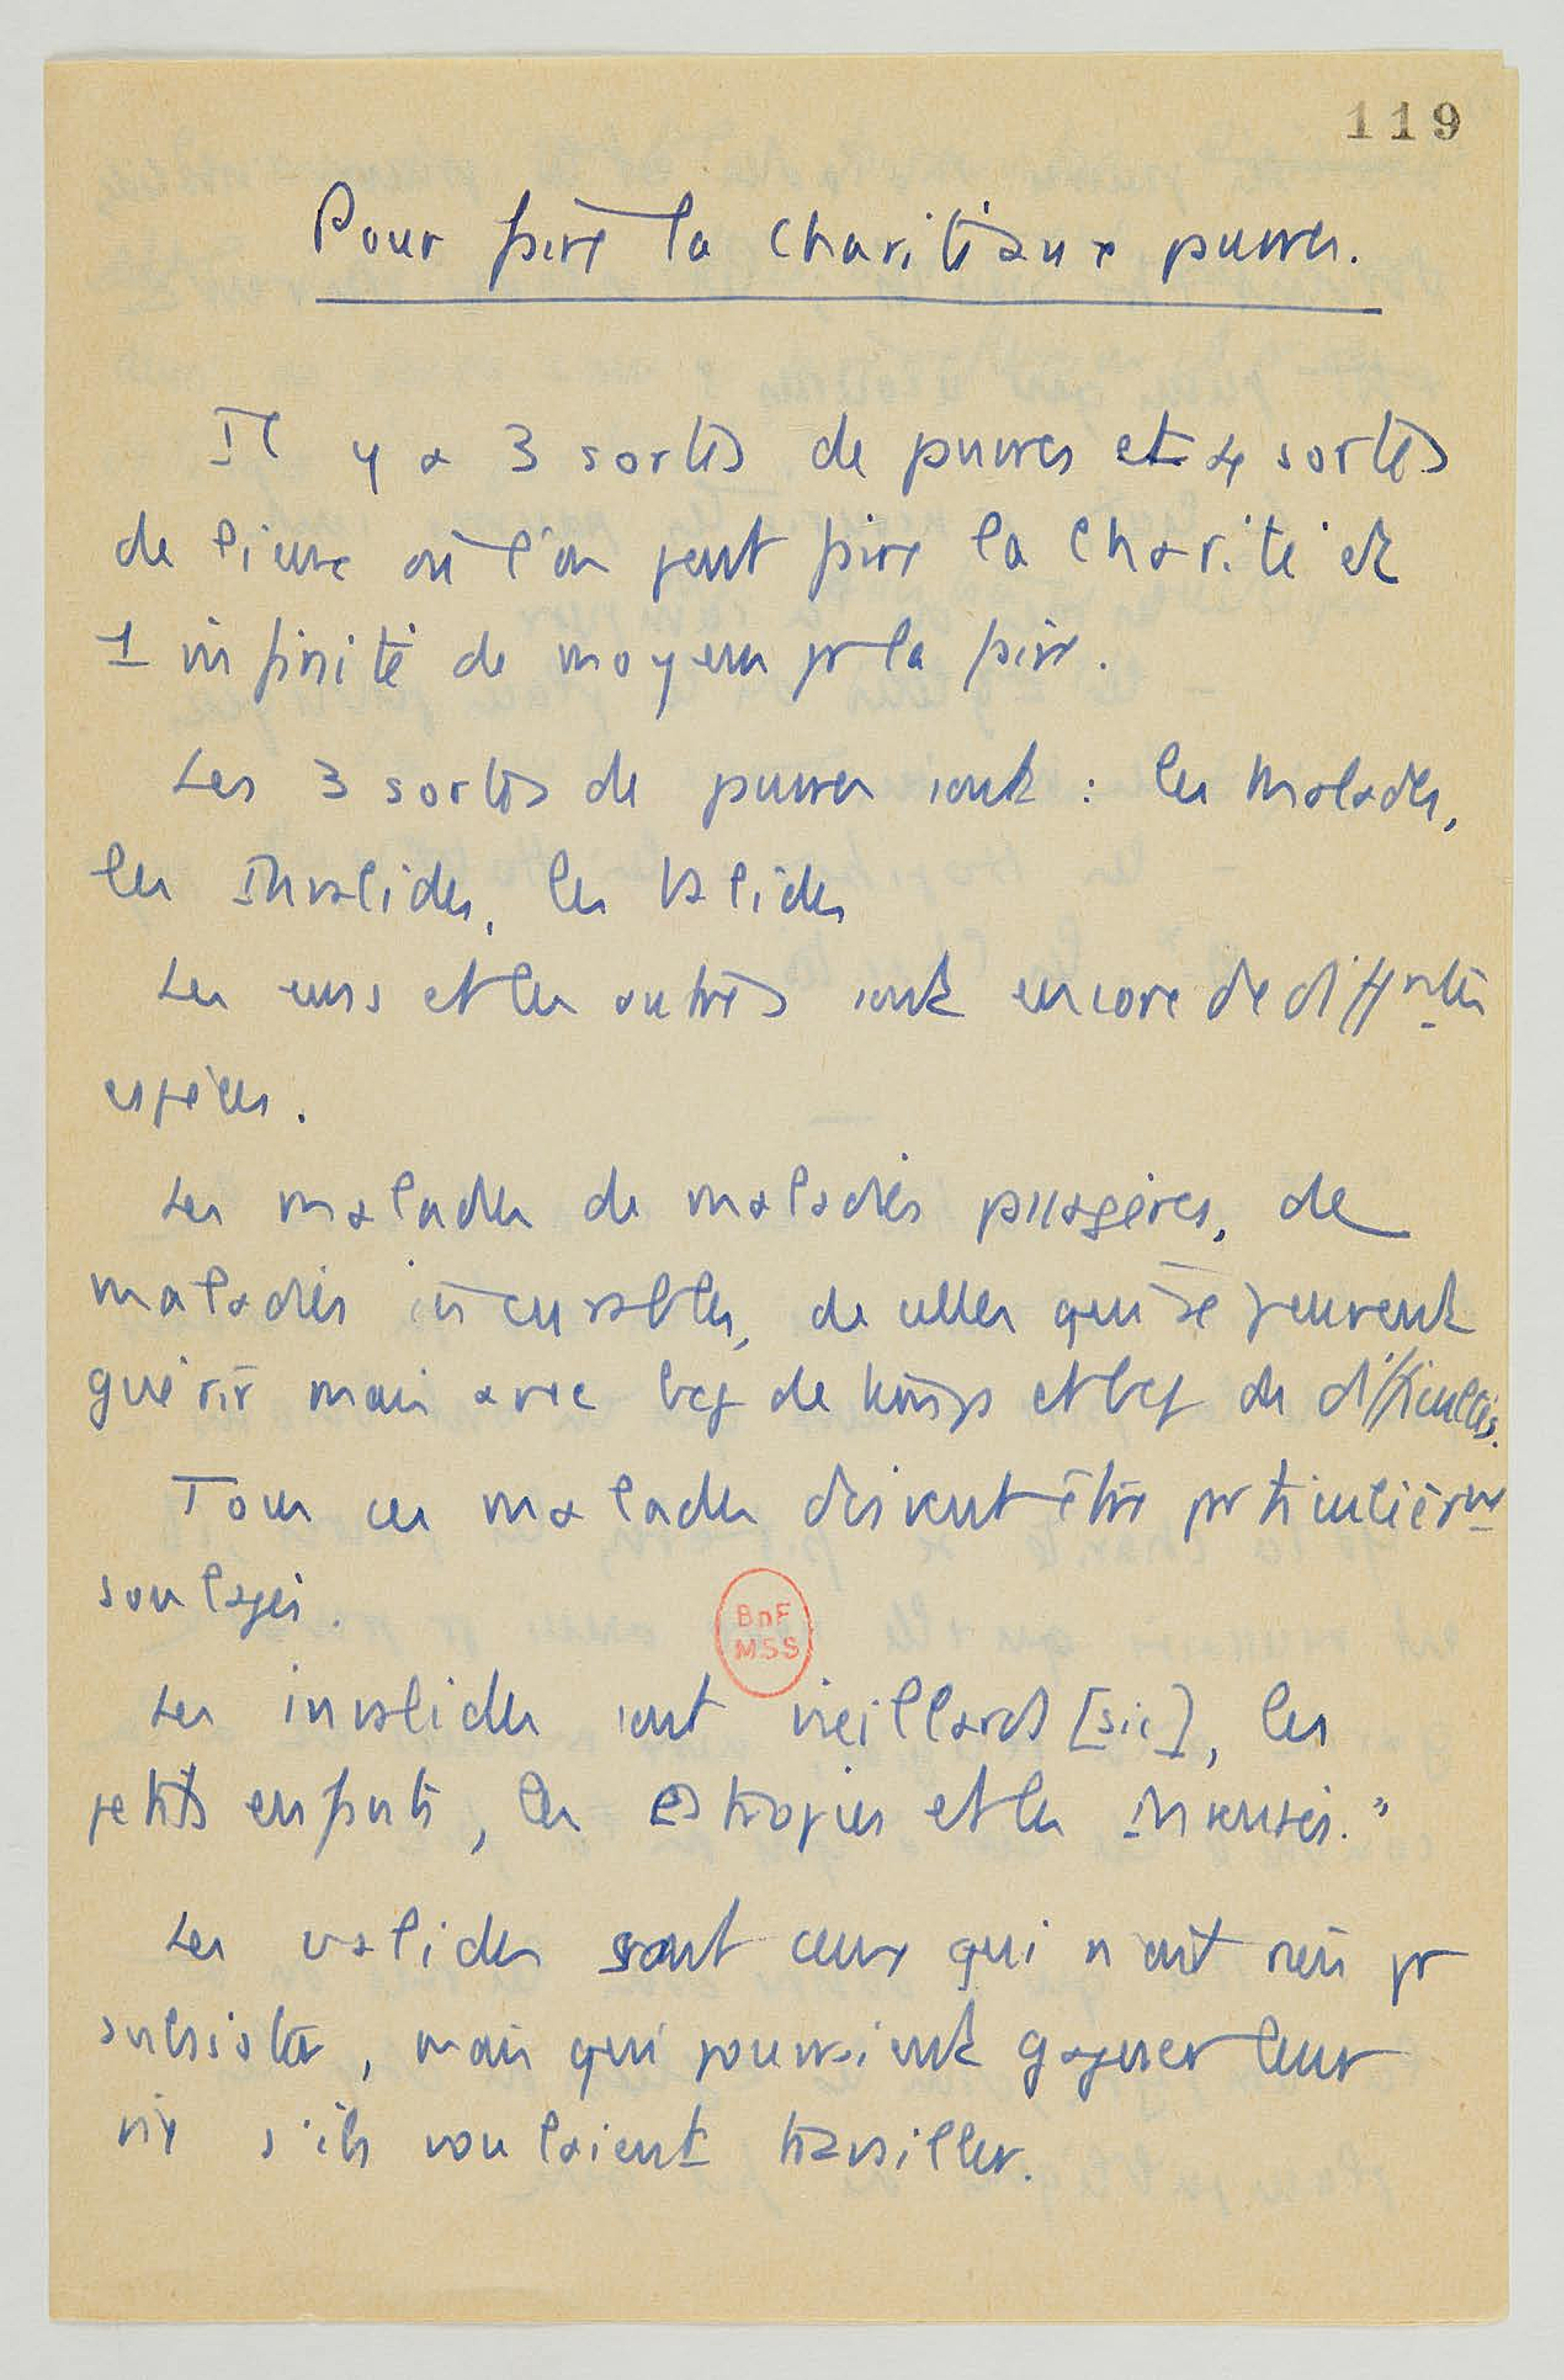 119
Pour faire la charité aux pauvres.
Il y a 3 sortes de pauvres et 4 sortes
de lieux où l'on peut faire la charité et
1 infinité de moyens pr la faire.
Les 3 sortes de pauvres sont : les Malades,
les Invalides, les Valides
Les uns et les autres sont encore de diffrtes
espèces.
Les malades de maladies passagères, de
maladies incurables, de celles qui se peuvent
guérir mais avec bcp de temps et bcp de difficultés.
Tous ces malades doivent être particulièrt
soulagés.
BnF
MSS
Les invalides sont vieillards [sic], les
petits enfants, les Estropiés et les Insensés."
Les valides sont ceux qui n'ont rien pr
subsister, mais qui pourraient gagner leur
vie s'ils voulaient travailler.